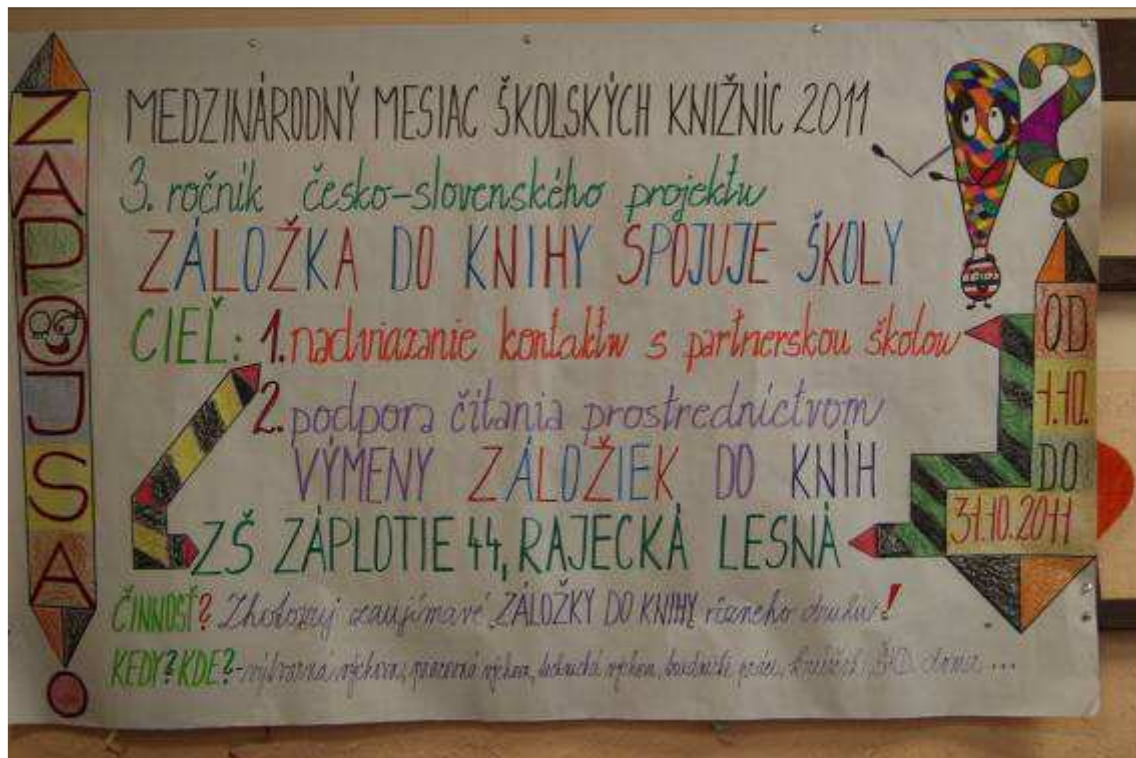 ZAPOJ SA!
MEDZINÁRODNÝ MESIAC ŠKOLSKÝCH KNIŽNÍC 2011
3. ročník česko-slovenského projektu
ZÁLOŽKA DO KNIHY SPOJUJE ŠKOLY
CIEĽ: 1. nadviazanie kontaktu s partnerskou školou
2. podpora čítania prostredníctvom
VÝMENY ZÁLOŽIEK DO KNÍH
ZŠ ZÁPLOTIE 44, RAJECKÁ LESNÁ
OD
1.10.
DO
31.10.2011
ČINNOSŤ? Zhotovuj zaujímavé ZÁLOŽKY DO KNIHY rôzneho druhu!
KEDY? KDE? - výtvarná výchova, pracovná výchova, technická výchova, ŠKD doma ...